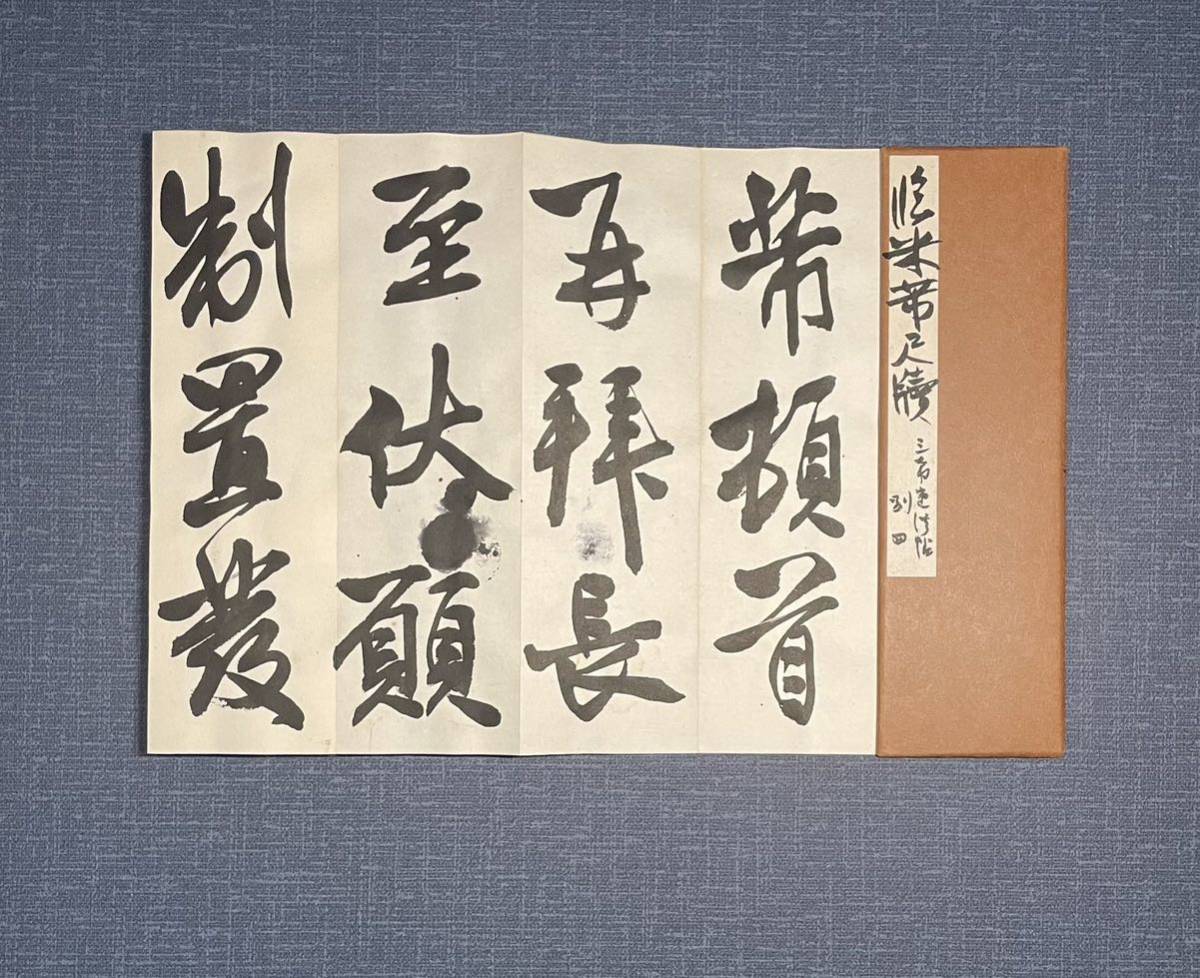 臨米芾尺牘
三希堂法帖
四
芾頓首
再拜長
至伏願
制置發